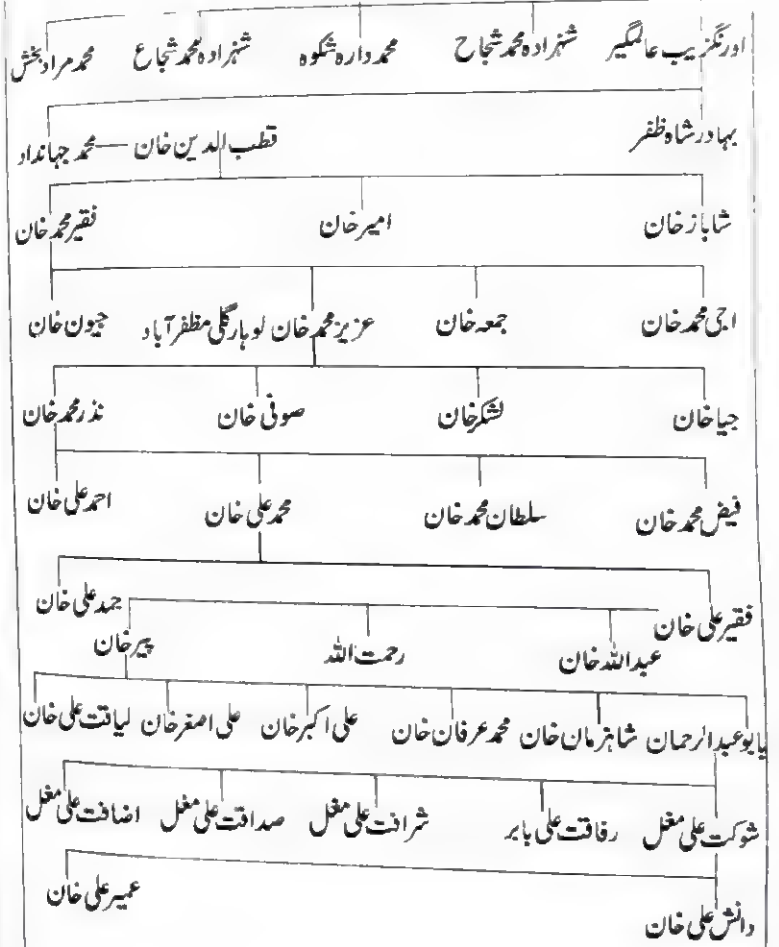 اورنگزیب عالمگیر شہزادہ محمد شجاح محمد دارہ شکوہ شہزادہ محمد شجاع محمد مراد بخش
بہادر شاہ ظفر قطب الدین خان محمد جہانداد
شاباز خان امیر خان فقیر محمد خان
اجی محمد خان جمعہ خان عزیز محمد خان لوہار گلی مظفر آباد جیون خان
جیا خان لشکر خان صوفی خان نذر محمد خان
فیض محمد خان سلطان محمد خان محمد علی خان احمد علی خان
فقیر علی خان جمد علی خان
عبداللہ خان رحمت اللہ پیر خان
بابو عبدالرحمان شاہزمان خان محمد عرفان خان علی اکبر خان علی اصغر خان لیاقت علی خان
شوکت علی مغل رفاقت علی بابر شرافت علی مغل صداقت علی مغل اضافت علی مغل
دانش علی خان عمیر علی خان